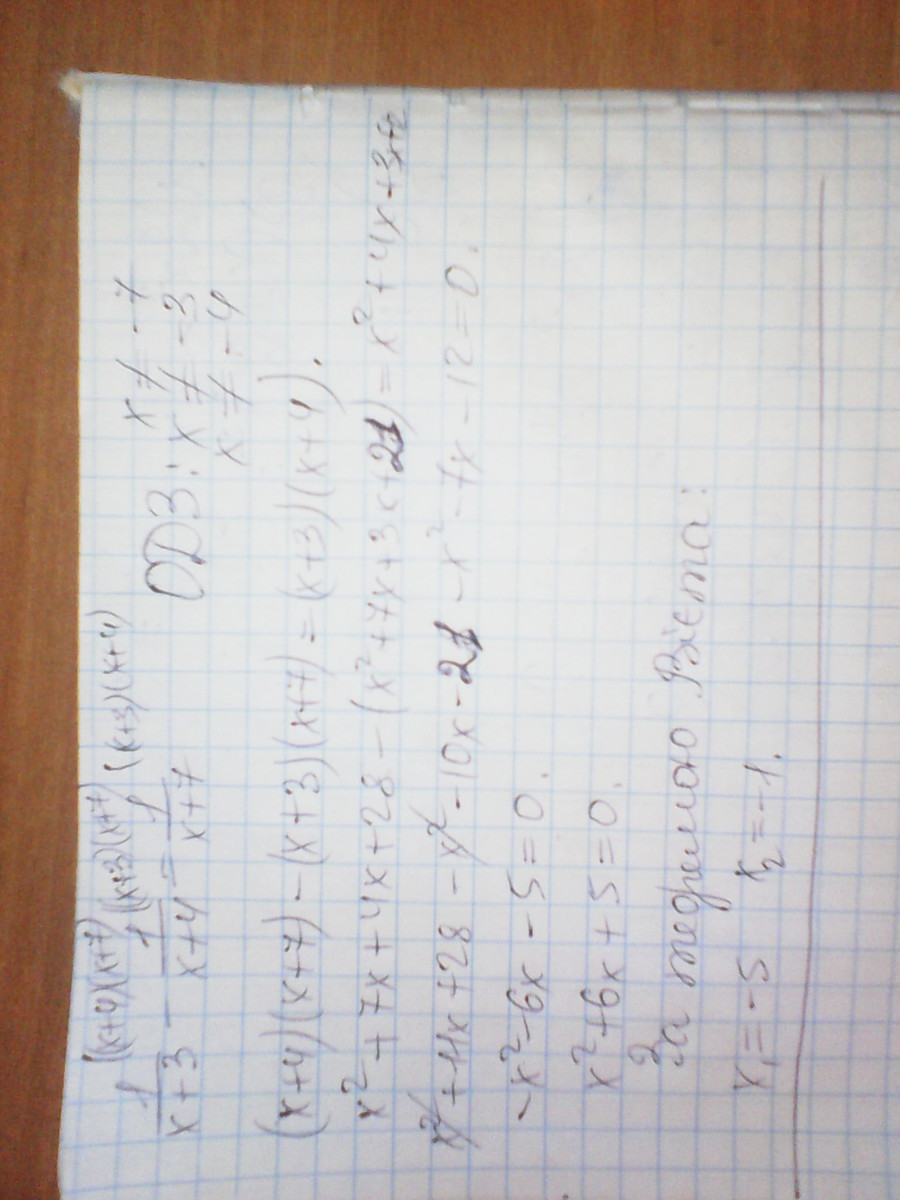 1/(x+3) ((x+4)(x+7) - 1/(x+4) ((x+3)(x+7) = 1/(x+7) ((x+3)(x+4)
ОДЗ: x ≠ -7
x ≠ -3
x ≠ -4
(x+4)(x+7) - (x+3)(x+7) = (x+3)(x+4).
x² + 7x + 4x + 28 - (x² + 7x + 3x + 21) = x² + 4x + 3x+12
x² + 11x + 28 - x² - 10x - 21 - x² - 7x - 12 = 0.
-x² - 6x - 5 = 0.
x² + 6x + 5 = 0.
За теоремою Вієта:
x₁ = -5 x₂ = -1.